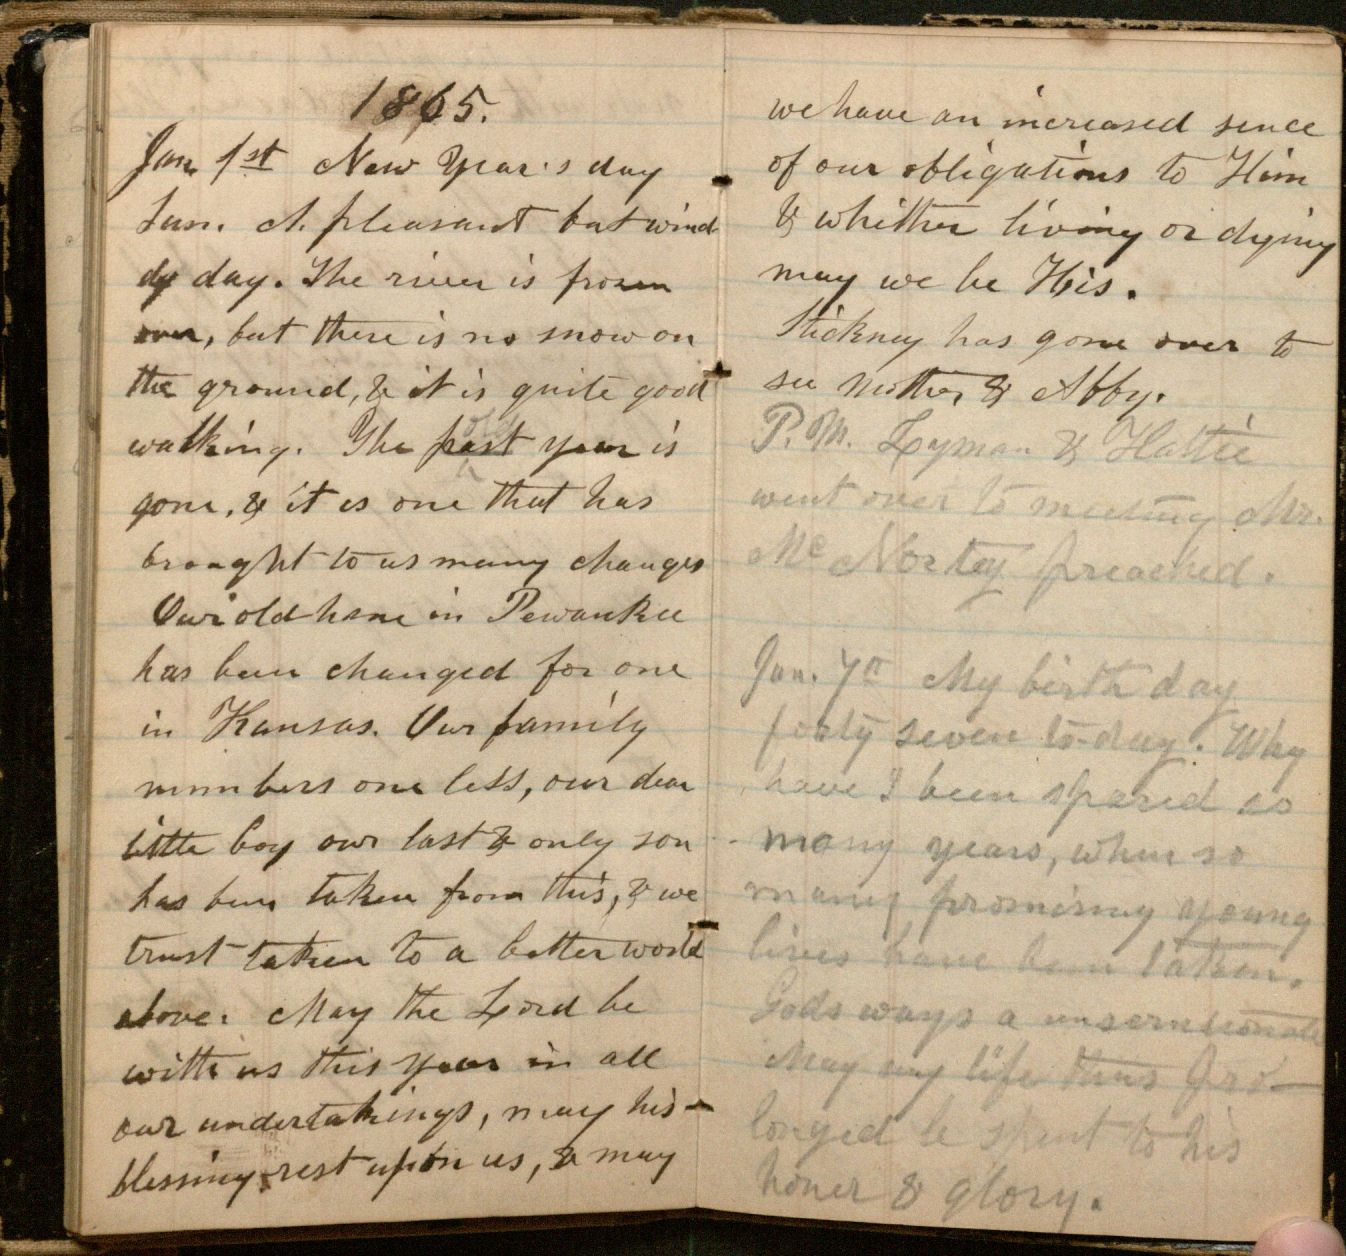 1865.
Jan 1st New Year's day
Sun. A pleasant but wind
dy day. The river is frozen
over, but there is no snow on
the ground, & it is quite good
walking. The past year is
gone, & it is one that has
brought to us many changes
Our old home in Pewaukee
has been changed for one
in Kansas. Our family
numbers one less, our dear
little boy our last & only son
has been taken from this, & we
trust taken to a better world
above. May the Lord be
with us this year in all
our undertakings, may his
blessing rest upon us, & may
we have an increased sence
of our obligations to Him
& whither living or dying
may we be His.
Stickney has gone over to
see Mother & Abby.
P.M. Lyman & Hattie
went over to meeting Mr.
Mc Nortey preached.
Jan. 7th My birth day
forty seven to-day. Why
have I been spared so
many years, when so
many promising young
lives have been taken.
Gods ways a
May my life thus pro-
longed be spent to his
honer & glory.